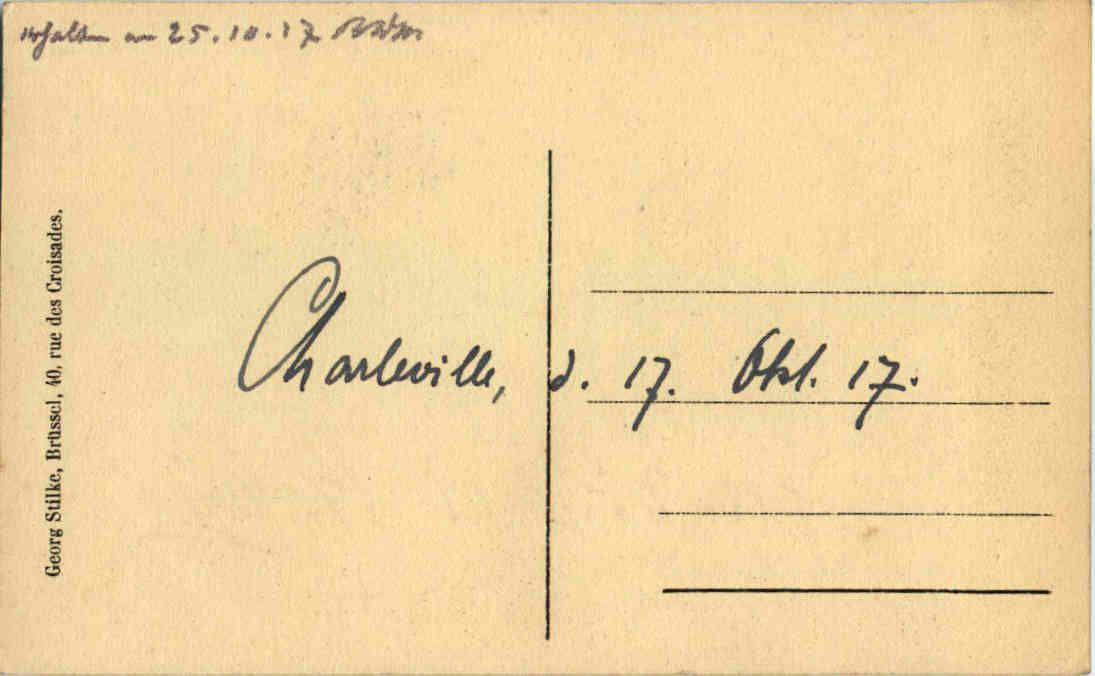 erhalten am 25.10.17
Georg Stilke, Brüssel, 40, rue des Croisades.
Charleville, d. 17. Okt. 17.